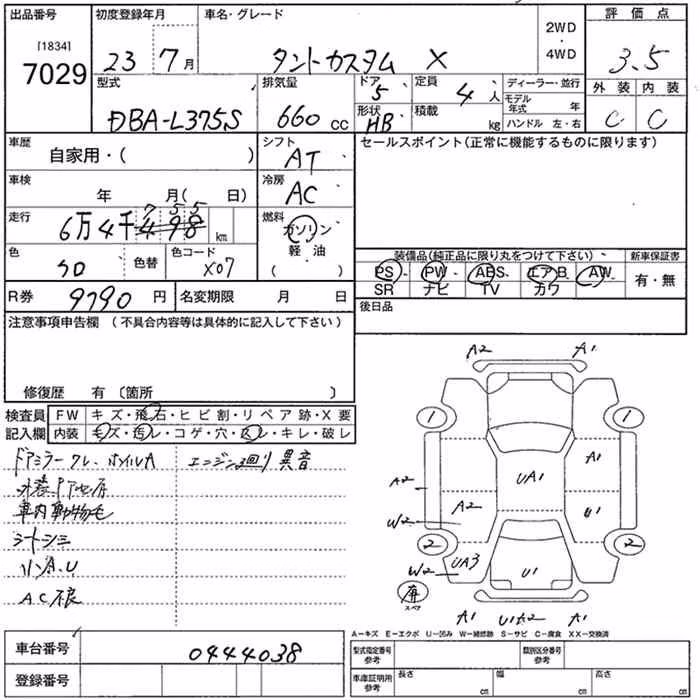 出品番号 初度登録年月 車名・グレード 2WD ・ 4WD 評価点
[1834]
7029 23 7月 タントカスタム X 3.5
型式 排気量 ドア 5 定員 4人 ディーラー・並行 外装 内装
DBA-L375S 660cc 形状 HB 積載 kg モデル年式 年 C C
ハンドル 左・右
車歴 自家用・( ) シフト AT セールスポイント(正常に機能するものに限ります)
車検 年 月( 日) 冷房 AC
走行 6万4千 755 498 km 燃料 ガソリン
軽・油
( )
色 色替 色コード X07 装備品(純正品に限り丸をつけて下さい) 新車保証書
PS PW ABS エアB AW 有・無
SR ナビ TV カワ
R券 9790円 名変期限 月 日 後日品
注意事項申告欄 (不具合内容等は具体的に記入して下さい)
修復歴 有 〔箇所 〕
検査員 FW キズ・飛石・ヒビ割・リペア跡・X要
記入欄 内装 キズ・汚レ・コゲ・穴・スレ・キレ・破レ
ドアミラーワレ、ホイルA エンジン廻り異音
車内動物毛
シートシミ
リンA、U
AC不良
A2 A1
1 1
UA1 A1
A2 A2 U1
W2
2 2
W2 UA3 U1
スペア
A1 U1A2 A1
A-キズ E-エクボ U-凹み W-補修跡 S-サビ C-腐食 XX-交換済
車台番号 0444038 型式指定番号 参考 類別区分番号 参考
登録番号 車庫証明用 参考 長さ cm 幅 cm 高さ cm